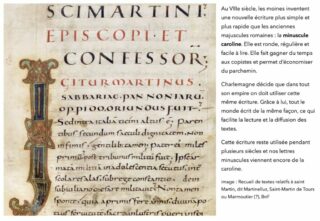 SCIMARTINI
EPISCOPI·ET
CONFESSOR·
GITURMARTINUS·
SABBARIAE·PANNONIARU
OPPIDOORIUNDUSFUIT·
bus secundum saeculi dignitatem
infimis gentilibus tamen pater
primum post tribunus militum fuit
militia inadulescentia secutus
scolares alas subrege constantio
subiuliano caesare militauit
Au VIIIe siècle, les moines inventent
une nouvelle écriture plus simple et
plus rapide que les anciennes
majuscules romaines : la minuscule
caroline. Elle est ronde, régulière et
facile à lire. Elle fait gagner du temps
aux copistes et permet d'économiser
du parchemin.
Charlemagne décide que dans tout
son empire on doit utiliser cette
même écriture. Grâce à lui, tout le
monde écrit de la même façon, ce qui
facilite la lecture et la diffusion des
textes.
Cette écriture reste utilisée pendant
plusieurs siècles et nos lettres
minuscules viennent encore de la
caroline.
image : Recueil de textes relatifs à saint
Martin, dit Martinellus, Saint-Martin de Tours
ou Marmoutier (?), BnF